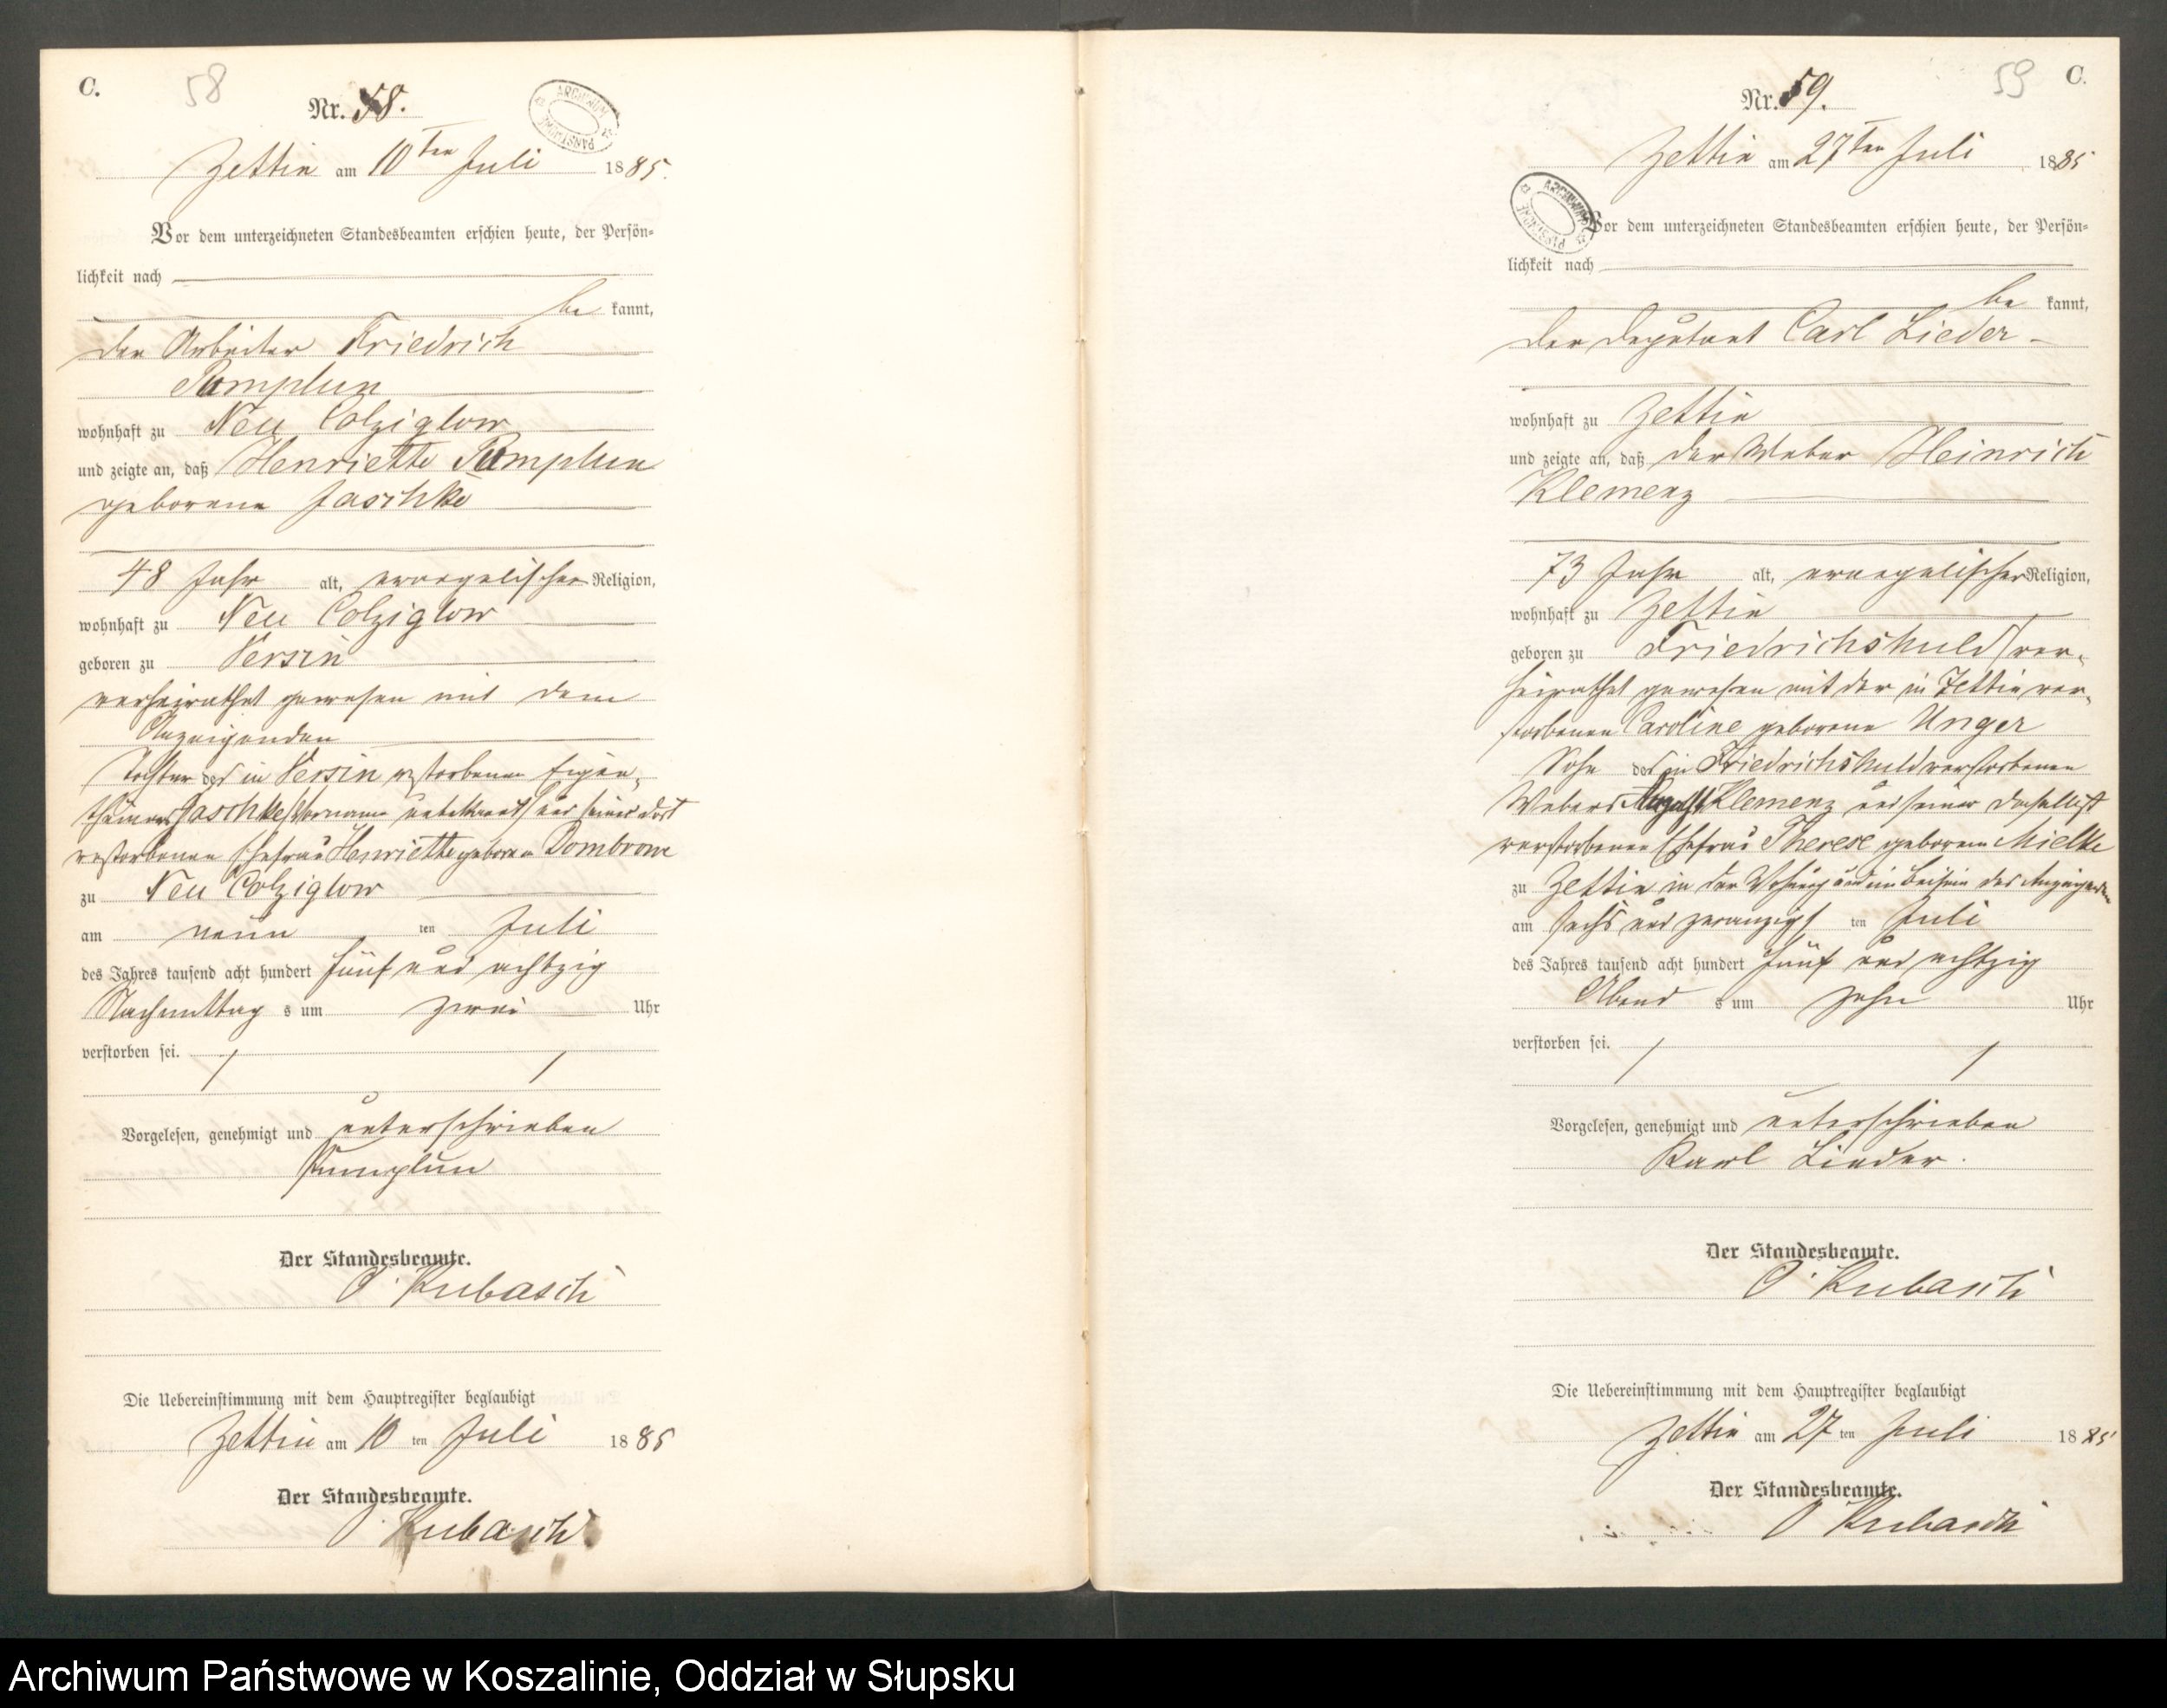 C.
58
Nr. 58.
ARCHIWUM PAŃSTWOWE
Zettin am 10ten Juli 1885.
Vor dem unterzeichneten Standesbeamten erschien heute, der Persön-
lichkeit nach
be kannt,
der Arbeiter Friedrich
Pomplun
wohnhaft zu Neu Colziglow
und zeigte an, daß Henriette Pomplun
geborene Jaschke
48 Jahr alt, evangelischer Religion,
wohnhaft zu Neu Colziglow
geboren zu Versin
verheirathet gewesen mit dem
Anzeigenden
Tochter des in Versin verstorbenen Eigen-
thümers Jaschke (Vorname unbekannt) und seiner dort
verstorbenen Ehefrau Henriette geborene Dombrow
zu Neu Colziglow
am neun ten Juli
des Jahres tausend acht hundert fünf und achtzig
Nachmittag s um zwei Uhr
verstorben sei.
Vorgelesen, genehmigt und unterschrieben
Pumplun
Der Standesbeamte.
O. Kubasch
Die Uebereinstimmung mit dem Hauptregister beglaubigt
Zettin am 10 ten Juli 1885
Der Standesbeamte.
O. Kubasch
59
C.
Nr. 59.
Zettin am 27ten Juli 1885
ARCHIWUM PAŃSTWOWE
Vor dem unterzeichneten Standesbeamten erschien heute, der Persön-
lichkeit nach
be kannt,
der Deputant Carl Lieder
wohnhaft zu Zettin
und zeigte an, daß der Weber Heinrich
Klemenz
73 Jahr alt, evangelischer Religion,
wohnhaft zu Zettin
geboren zu Friedrichshuld, ver-
heirathet gewesen mit der in Zettin ver-
storbenen Caroline geborene Unger
Sohn des in Friedrichshuld verstorbenen
Webers Klemenz und seiner daselbst
verstorbenen Ehefrau Therese geborene Mielke
zu Zettin in der Wohnung und im Beisein des Anzeigenden
am sechs und zwanzigs ten Juli
des Jahres tausend acht hundert fünf und achtzig
Abend s um zehn Uhr
verstorben sei.
Vorgelesen, genehmigt und unterschrieben
Karl Lieder.
Der Standesbeamte.
O. Kubasch
Die Uebereinstimmung mit dem Hauptregister beglaubigt
Zettin am 27 ten Juli 1885
Der Standesbeamte.
O Kubasch
Archiwum Państwowe w Koszalinie, Oddział w Słupsku